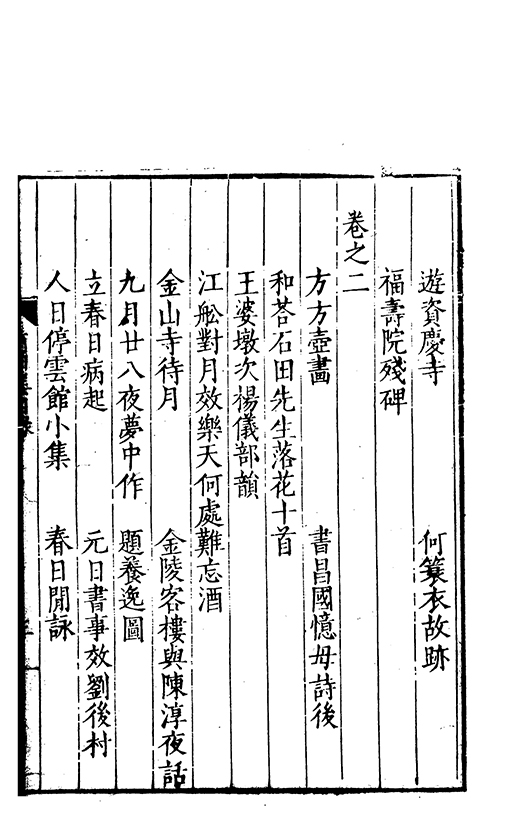 遊資慶寺　何蓑衣故跡
福壽院殘碑
卷之二
方方壺畵　書昌國憶母詩後
和荅石田先生落花十首
王婆墩次楊儀部韻
江舩對月效樂天何處難忘酒
金山寺待月　金陵客樓與陳淳夜話
九月廿八夜夢中作　題養逸圖
立春日病起　元日書事效劉後村
人日停雲館小集　春日閒詠